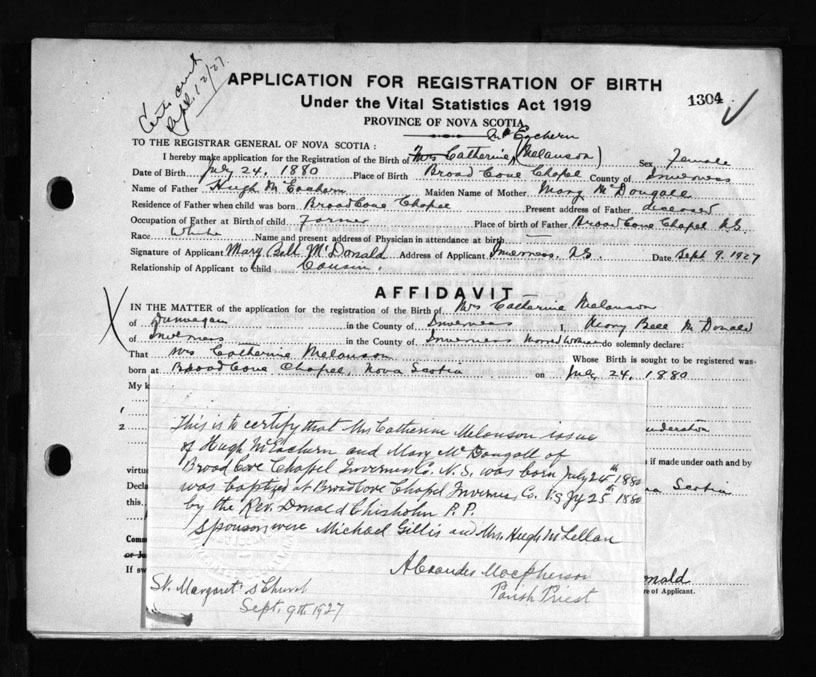 Certs sent
Sept. 12/27.
APPLICATION FOR REGISTRATION OF BIRTH
Under the Vital Statistics Act 1919
1304
PROVINCE OF NOVA SCOTIA
McEachern
TO THE REGISTRAR GENERAL OF NOVA SCOTIA:
I hereby make application for the Registration of the Birth of Mrs Catherine (Melanson) Sex Female
Date of Birth July 24, 1880 Place of Birth Broad Cove Chapel County of Inverness
Name of Father Hugh McEachern Maiden Name of Mother Mary McDougall
Residence of Father when child was born Broad Cove Chapel Present address of Father deceased
Occupation of Father at Birth of child Farmer Place of birth of Father Broad Cove Chapel N.S.
Race White Name and present address of Physician in attendance at birth —
Signature of Applicant Mary Bell McDonald Address of Applicant Inverness, N.S. Date Sept 9, 1927
Relationship of Applicant to child Cousin.
AFFIDAVIT
IN THE MATTER of the application for the registration of the Birth of Mrs Catherine Melanson
of Dunvegan in the County of Inverness I, Mary Bell McDonald
of Inverness in the County of Inverness Married Woman do solemnly declare:
That Mrs Catherine Melanson Whose Birth is sought to be registered was
born at Broad Cove Chapel, Nova Scotia on July 24, 1880
My k
1
2
This is to certify that Mrs Catherine Melanson issue
of Hugh McEachern and Mary McDougall of
Broad Cove Chapel Inverness Co. N.S. was born July 24th 1880
was baptized at Broad Cove Chapel Inverness Co. N.S Jy 25th 1880
by the Rev. Donald Chisholm P.P.
Sponsors were Michael Gillis and Mrs. Hugh McLellan
Alexander Macpherson
Parish Priest
St. Margaret's Church
Sept. 9th 1927
virtu
s if made under oath and by
Decla
a Scotia
this,
Comm
or Ju
If sw
onald
re of Applicant.